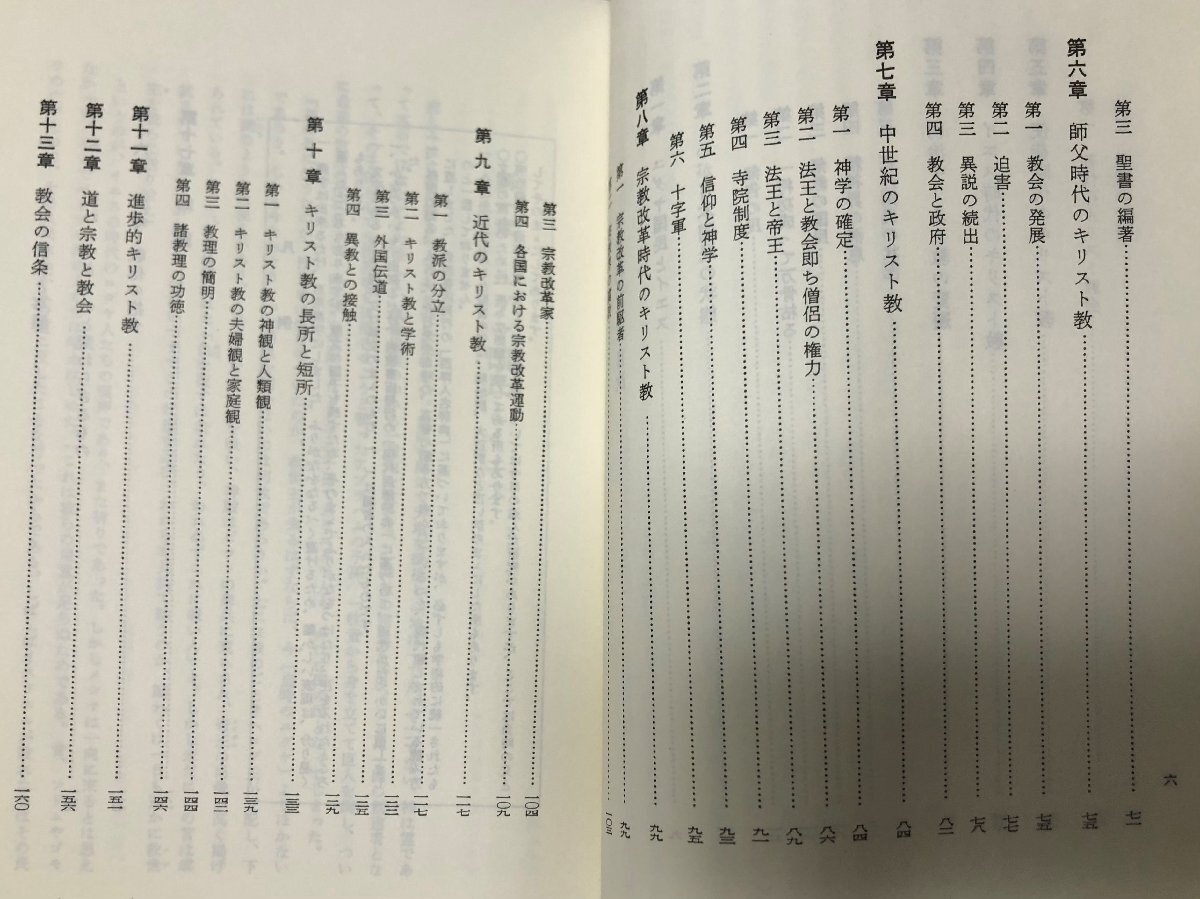 六
第三　聖書の編著……七一
第六章　師父時代のキリスト教……七五
第一　教会の発展……七五
第二　迫害……七七
第三　異説の続出……七八
第四　教会と政府……八二
第七章　中世紀のキリスト教……八四
第一　神学の確定……八四
第二　法王と教会即ち僧侶の権力……八六
第三　法王と帝王……八九
第四　寺院制度……九一
第五　信仰と神学……九三
第六　十字軍……九五
第八章　宗教改革時代のキリスト教……九九
第一　宗教改革の前駆者……九九
第三　宗教改革家……一〇四
第四　各国における宗教改革運動……一〇九
第九章　近代のキリスト教……一一七
第一　教派の分立……一一七
第二　キリスト教と学術……一二三
第三　外国伝道……一二五
第四　異教との接触……一二九
第十章　キリスト教の長所と短所……一三三
第一　キリスト教の神観と人類観……一三九
第二　キリスト教の夫婦観と家庭観……一四二
第三　教理の簡明……一四四
第四　諸教理の功徳……一四六
第十一章　進歩的キリスト教……一五一
第十二章　道と宗教と教会……一五六
第十三章　教会の信条……一六〇